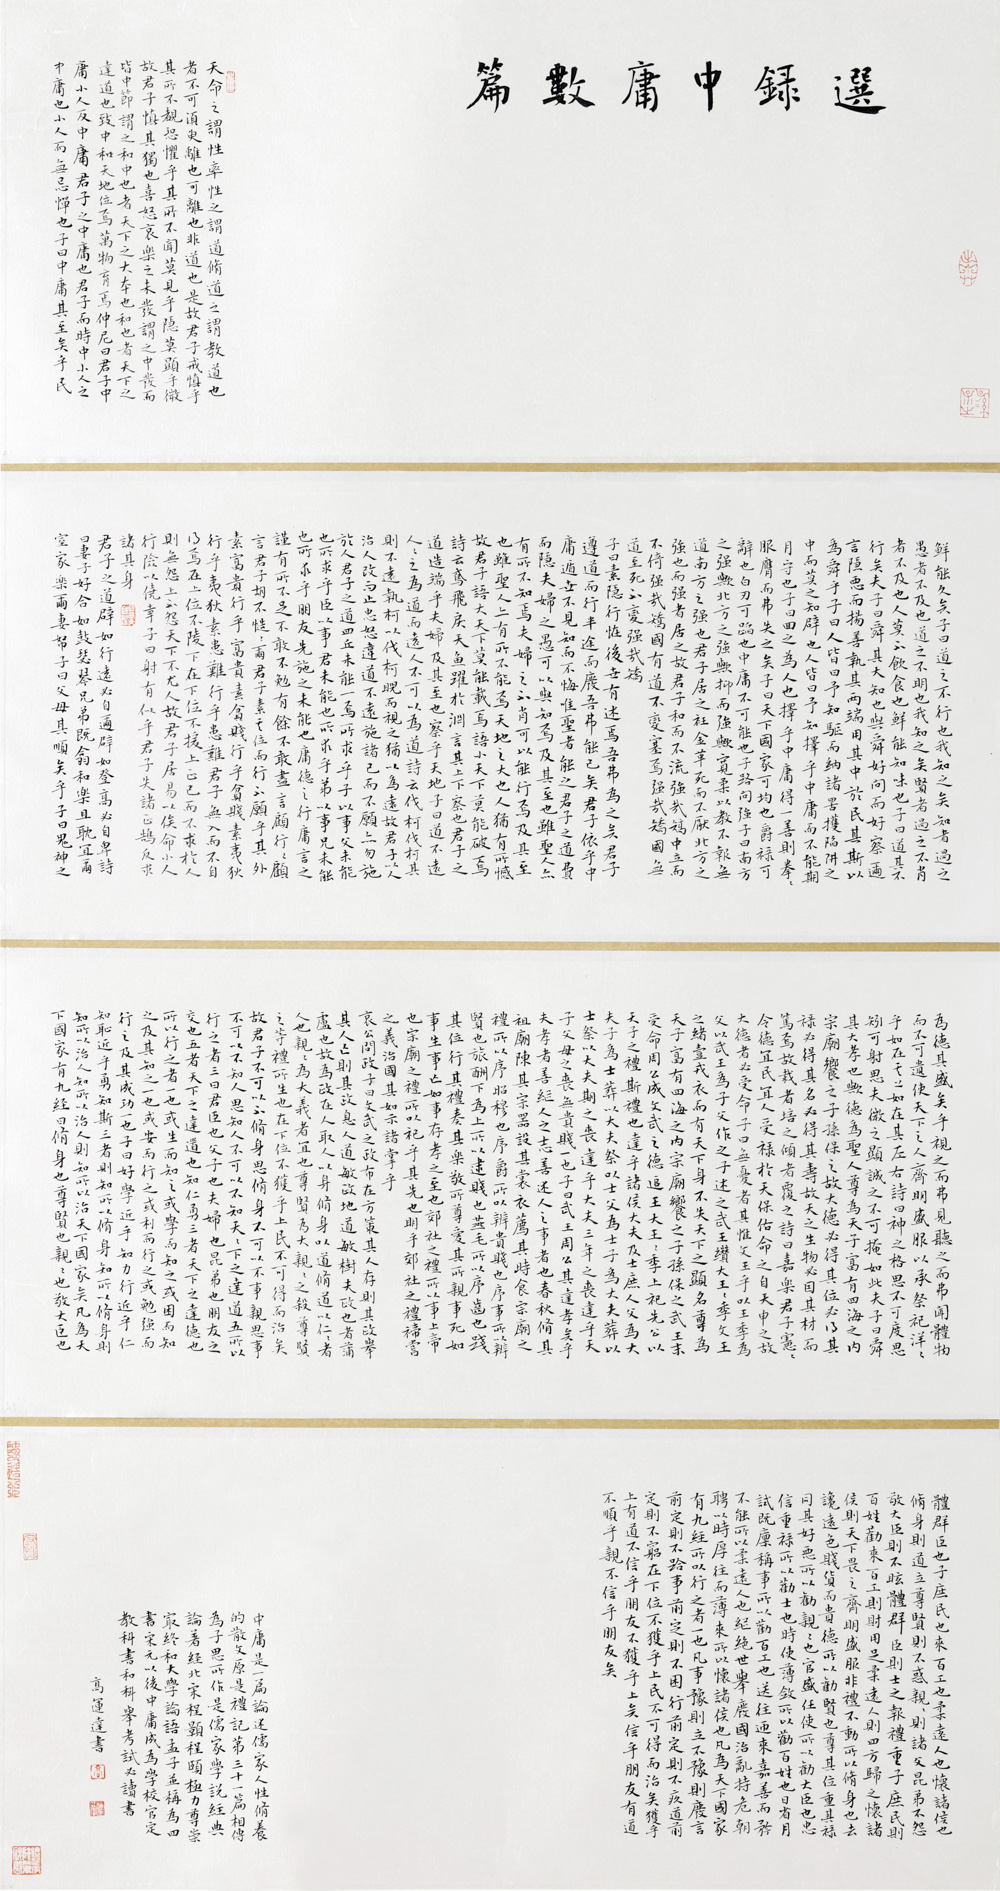 選錄中庸數篇
天命之謂性率性之謂道脩道之謂教道也
者不可須臾離也可離也非道也是故君子戒慎乎
其所不覩恐懼乎其所不聞莫見乎隱莫顯乎微
故君子慎其獨也喜怒哀樂之未發謂之中發而
皆中節謂之和中也者天下之大本也和也者天下之
達道也致中和天地位焉萬物育焉仲尼曰君子中
庸小人反中庸君子之中庸也君子而時中小人之
中庸也小人而無忌憚也子曰中庸其至矣乎民
鮮能久矣子曰道之不行也我知之矣知者過之
愚者不及也道之不明也我知之矣賢者過之不肖
者不及也人莫不飲食也鮮能知味也子曰道其不
行矣夫子曰舜其大知也與舜好問而好察邇
言隱惡而揚善執其兩端用其中於民其斯以
為舜乎子曰人皆曰予知驅而納諸罟擭陷阱之
中而莫之知辟也人皆曰予知擇乎中庸而不能期
月守也子曰回之為人也擇乎中庸得一善則拳〻
服膺而弗失之矣子曰天下國家可均也爵祿可
辭也白刃可蹈也中庸不可能也子路問強子曰南方
之強歟北方之強歟抑而強歟寬柔以教不報無
道南方之強也君子居之衽金革死而不厭北方之
強也而強者居之故君子和而不流強哉矯中立而
不倚強哉矯國有道不變塞焉強哉矯國無
道至死不變強哉矯
子曰素隱行怪後世有述焉吾弗為之矣君子
遵道而行半途而廢吾弗能已矣君子依乎中
庸遁世不見知而不悔惟聖者能之君子之道費
而隱夫婦之愚可以與知焉及其至也雖聖人亦
有所不知焉夫婦之不肖可以能行焉及其至
也雖聖人亦有所不能焉天地之大也人猶有所憾
故君子語大天下莫能載焉語小天下莫能破焉
詩云鳶飛戾天魚躍於淵言其上下察也君子之
道造端乎夫婦及其至也察乎天地子曰道不遠
人〻之為道而遠人不可以為道詩云伐柯伐柯其
則不遠執柯以伐柯睨而視之猶以為遠故君子以人
治人改而止忠恕違道不遠施諸己而不願亦勿施
於人君子之道四丘未能一焉所求乎子以事父未能
也所求乎臣以事君未能也所求乎弟以事兄未能
也所求乎朋友先施之未能也庸德之行庸言之
謹有所不足不敢不勉有餘不敢盡言顧行〻顧
言君子胡不慥〻爾君子素其位而行不願乎其外
素富貴行乎富貴素貧賤行乎貧賤素夷狄
行乎夷狄素患難行乎患難君子無入而不自
得焉在上位不陵下在下位不援上正己而不求於人
則無怨上不怨天下不尤人故君子居易以俟命小人
行險以僥幸子曰射有似乎君子失諸正鵠反求
諸其身
君子之道辟如行遠必自邇辟如登高必自卑詩
曰妻子好合如鼓瑟琴兄弟既翕和樂且耽宜爾
室家樂爾妻帑子曰父母其順矣乎子曰鬼神之
為德其盛矣乎視之而弗見聽之而弗聞體物
而不可遺使天下之人齊明盛服以承祭祀洋〻
乎如在其上如在其左右詩曰神之格思不可度思
矧可射思夫微之顯誠之不可掩如此夫子曰舜
其大孝也歟德為聖人尊為天子富有四海之內
宗廟饗之子孫保之故大德必得其位必得其
祿必得其名必得其壽故天之生物必因其材而
篤焉故栽者培之傾者覆之詩曰嘉樂君子憲〻
令德宜民宜人受祿於天保佑命之自天申之故
大德者必受命子曰無憂者其惟文王乎以王季為
父以武王為子父作之子述之武王纘大王〻季文王
之緒壹戎衣而有天下身不失天下之顯名尊為
天子富有四海之內宗廟饗之子孫保之武王末
受命周公成文武之德追王大王〻季上祀先公以
天子之禮斯禮也達乎諸侯大夫及士庶人父為大
夫子為士葬以大夫祭以士父為士子為大夫葬以
士祭以大夫期之喪達乎大夫三年之喪達乎天
子父母之喪無貴賤一也子曰武王周公其達孝矣乎
夫孝者善繼人之志善述人之事者也春秋脩其
祖廟陳其宗器設其裳衣薦其時食宗廟之
禮所以序昭穆也序爵所以辨貴賤也序事所以辨
賢也旅酬下為上所以逮賤也燕毛所以序齒也踐
其位行其禮奏其樂敬所尊愛其所親事死如
事生事亡如事存孝之至也郊社之禮所以事上帝
也宗廟之禮所以祀乎其先也明乎郊社之禮禘嘗
之義治國其如示諸掌乎
哀公問政子曰文武之政布在方策其人存則其政舉
其人亡則其政息人道敏政地道敏樹夫政也者蒲
盧也故為政在人取人以身脩身以道脩道以仁〻者
人也親〻為大義者宜也尊賢為大親〻之殺尊賢
之等禮所生也在下位不獲乎上民不可得而治矣
故君子不可以不脩身思脩身不可以不事親思事
親不可以不知人思知人不可以不知天〻下之達道五所以
行之者三曰君臣也父子也夫婦也昆弟也朋友之
交也五者天下之達道也知仁勇三者天下之達德也
所以行之者一也或生而知之或學而知之或困而知
之及其知之一也或安而行之或利而行之或勉強而
行之及其成功一也子曰好學近乎知力行近乎仁
知恥近乎勇知斯三者則知所以脩身知所以脩身則
知所以治人知所以治人則知所以治天下國家矣凡為天
下國家有九經曰脩身也尊賢也親〻也敬大臣也
體群臣也子庶民也來百工也柔遠人也懷諸侯也
脩身則道立尊賢則不惑親〻則諸父昆弟不怨
敬大臣則不眩體群臣則士之報禮重子庶民則
百姓勸來百工則財用足柔遠人則四方歸之懷諸
侯則天下畏之齊明盛服非禮不動所以脩身也去
讒遠色賤貨而貴德所以勸賢也尊其位重其祿
同其好惡所以勸親〻也官盛任使所以勸大臣也忠
信重祿所以勸士也時使薄斂所以勸百姓也日省月
試既廩稱事所以勸百工也送往迎來嘉善而矜
不能所以柔遠人也繼絕世舉廢國治亂持危朝
聘以時厚往而薄來所以懷諸侯也凡為天下國家
有九經所以行之者一也凡事豫則立不豫則廢言
前定則不跲事前定則不困行前定則不疚道前
定則不窮在下位不獲乎上民不可得而治矣獲乎
上有道不信乎朋友不獲乎上矣信乎朋友有道
不順乎親不信乎朋友矣
中庸是一扁論述儒家人性脩養
的散文原是禮記第三十一篇相傳
為子思所作是儒家學說經典
論著經北宋程顥程頤極力尊崇
最終和大學論語孟子並稱為四
書宋元以後中庸成為學校官定
教科書和科舉考試必讀書
高運達書